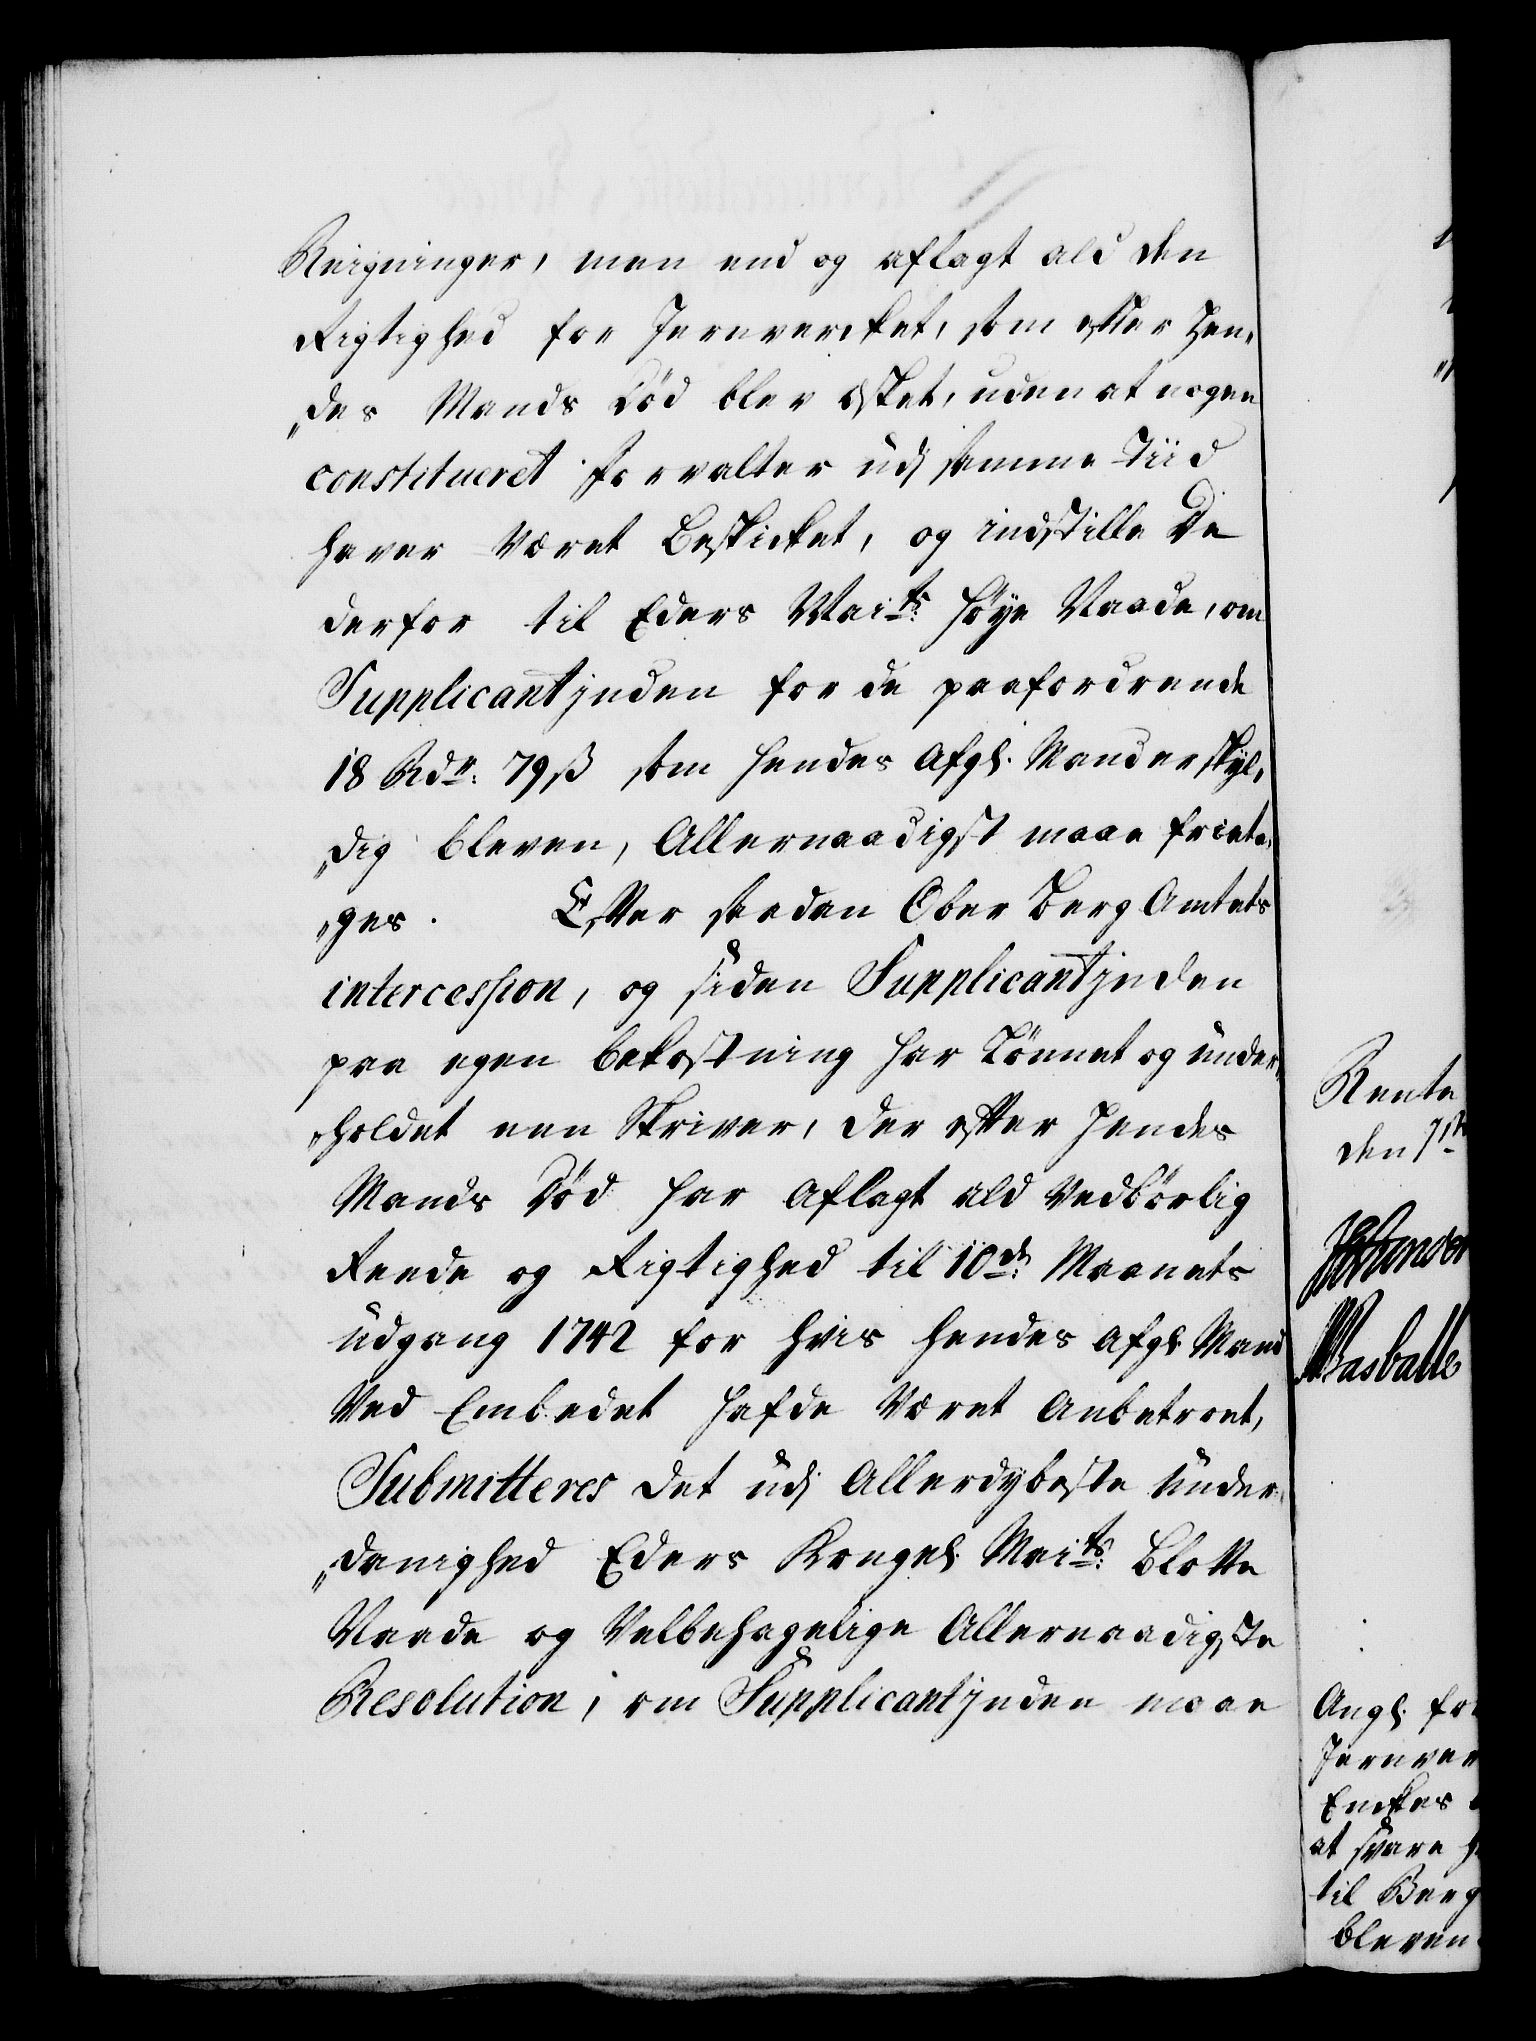 Reigninger, men end og aflagt ald den
Rigtighed for Jernvercket, som efter Hen,
„des Mands Död blev æsket, uden at nogen
constitueret Forvalter udj samme Tiid
haver været Beskicket, og indstille De
derfor til Eders Maits: höye Naade, om
Supplicantjnden for de paafordrende
18 Rdr: 79ß som hendes Afgl. Mand er skyl,
„dig bleven, Allernaadigst maae frieta,
„ges. Efter saadan Ober Berg Amtets
intercession, og siden Supplicantjnden
paa egen bekostning har Lönnet og under,
„holdet een Skriver, der efter Hendes
Mands Död har Aflagt ald Vedbörlig
Reede og Rigtighed til 10de: Maanets
udgang 1742 for hvis hendes Afgl. Mand
Ved Embedet hafde Været Anbetroet,
Submitteres det udj Allerdybeste Under,
„danighed Eders Kongel. Maits: Blotte
Naade og Velbehagelige Allernaadigste
Resolution, om Supplicantjnden maae
Rente
den 7de
Wasballe
Angl. for
Jernver
Enckes
at svare h
til Berg
bleven